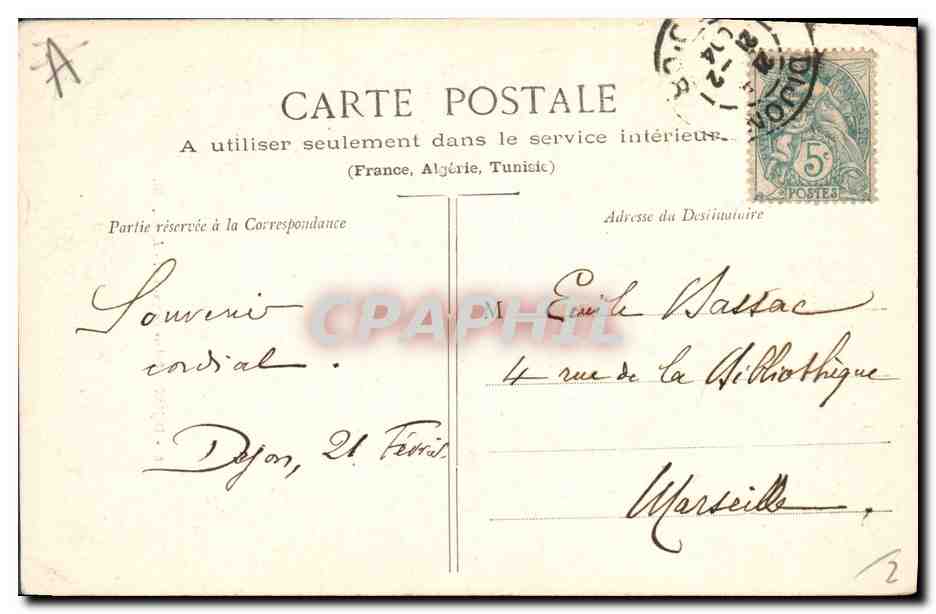 A
CARTE POSTALE
A utiliser seulement dans le service intérieur
(France, Algérie, Tunisie)
Partie réservée à la Correspondance
Adresse du Destinataire
5c
POSTES
DIJON
21 -2 04
Souvenir
cordial.
Dijon, 21 Février
M Emile Bassac
4 rue de la Bibliothèque
Marseille.
CPAPHIL
2